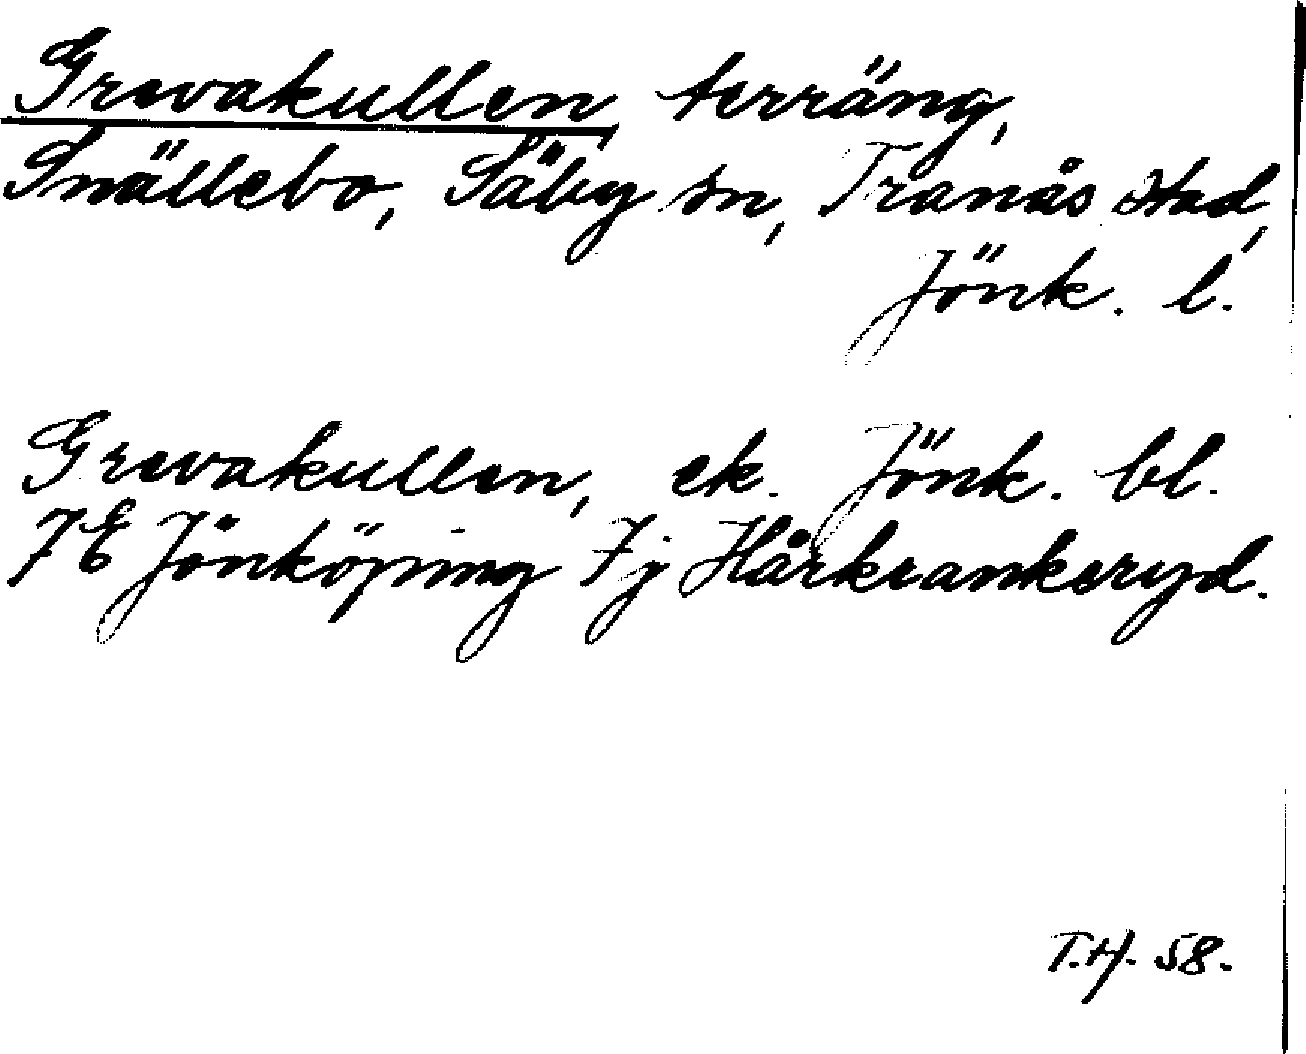 Grevakullen, terräng,
Snällebo, Säby sn, Tranås stad,
Jönk. l.
Grevakullen, ek. Jönk. bl.
7E Jönköping 7j Hårkrankeryd.
T.H. 58.